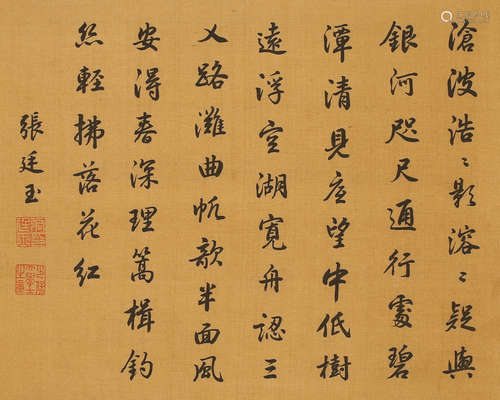 滄波浩〻影溶〻疑與
銀河咫尺通行處碧
潭清見底望中低樹
遠浮空湖寬舟認三
乂路灘曲帆歆半面風
安得春深理蒿楫釣
絲輕拂落花紅
張廷玉